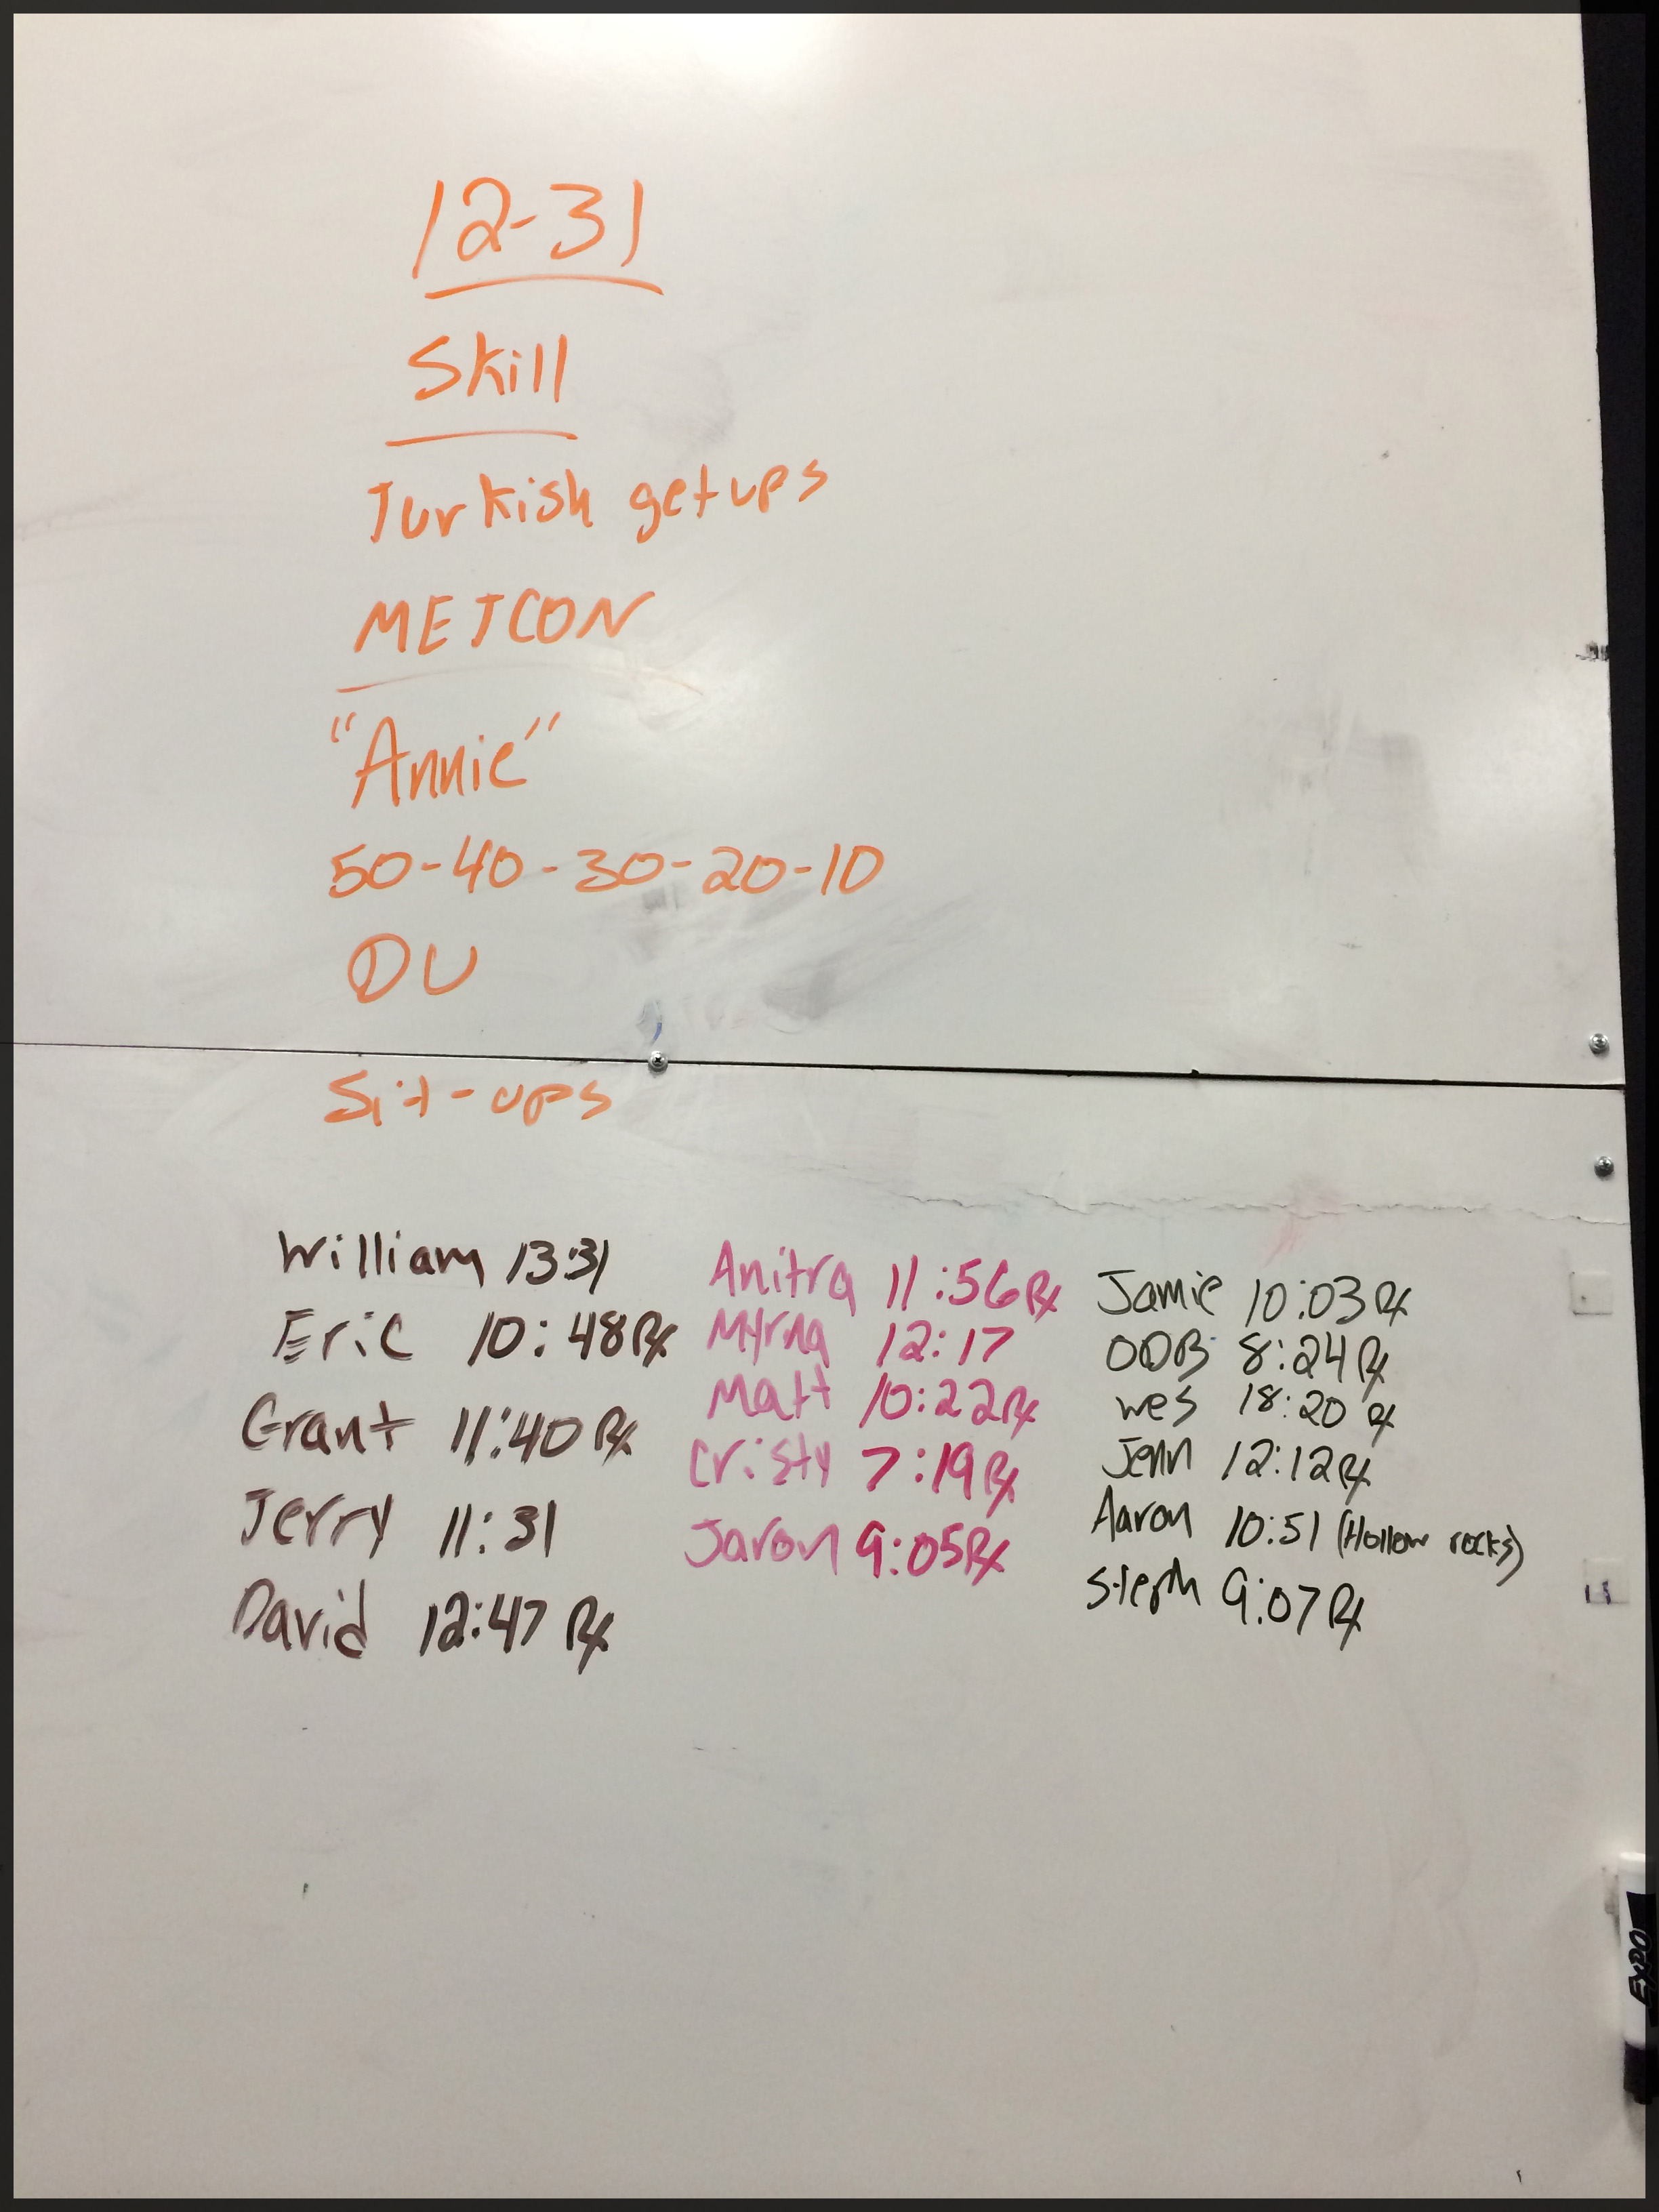 12-31
Skill
Turkish getups
METCON
"Annie"
50-40-30-20-10
DU
Sit-ups
William 13:31
Eric 10:48 Rx
Grant 11:40 Rx
Jerry 11:31
David 12:47 Rx
Anitra 11:56 Rx
Myrna 12:17
Matt 10:22 Rx
Cristy 7:19 Rx
Jaron 9:05 Rx
Jamie 10:03 Rx
ODB 8:24 Rx
Wes 18:20 Rx
Jenn 12:12 Rx
Aaron 10:51 (Hollow rocks)
Steph 9:07 Rx
EXPO